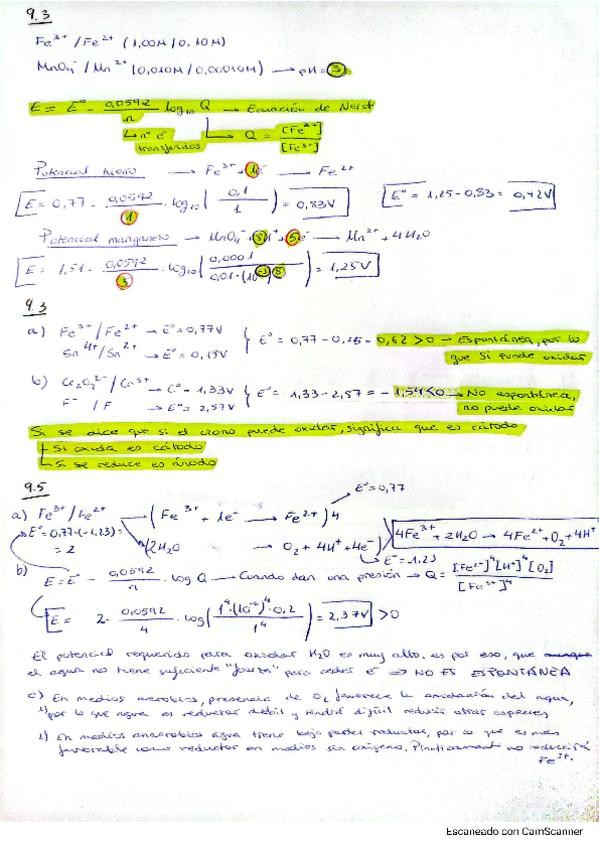 9.3
Fe³⁺/Fe²⁺ (1,00M/0.10M)
MnO₄⁻/Mn²⁺ (0,010M/0,00010M) → pH = 3
E = E° - 0,0592/n log₁₀ Q → Ecuación de Nerst
nº e⁻ transferidos
Q = [Fe²⁺]/[Fe³⁺]
Potencial hierro → Fe³⁺ + 1e⁻ → Fe²⁺
E = 0,77 - 0,0592/1 · log₁₀ (0,1/1) = 0,83V
E° = 1,25 - 0,83 = 0,42V
Potencial manganeso → MnO₄⁻ + 8H⁺ + 5e⁻ → Mn²⁺ + 4H₂O
E = 1,51 - 0,0592/5 · log₁₀ (0,0001/0,01·(10⁻³)⁸) = 1,25V
9.3
a) Fe³⁺/Fe²⁺ → E° = 0,77V
Sn⁴⁺/Sn²⁺ → E° = 0,15V
E° = 0,77 - 0,15 = 0,62 > 0 → Espontánea, por lo que Si puede oxidar
b) Cr₂O₇²⁻/Cr³⁺ → E° = 1,33V
F⁻/F → E° = 2,87V
E° = 1,33 - 2,87 = -1,54 < 0 → No espontánea, no puede oxidar
Si se dice que si el cromo puede oxidar, significa que es cátodo
Si oxida es cátodo
Si se reduce es ánodo
9.5
a) Fe³⁺/Fe²⁺ → (Fe³⁺ + 1e⁻ → Fe²⁺) 4
E° = 0,77
E° = 0,77 - (-1,23) = 2
(2H₂O → O₂ + 4H⁺ + 4e⁻)
E° = 1.23
4Fe³⁺ + 2H₂O → 4Fe²⁺ + O₂ + 4H⁺
b) E = E° - 0,0592/n · log Q → Cuando dan una presión → Q = [Fe²⁺]⁴ [H⁺]⁴ [O₂]/[Fe³⁺]⁴
E = 2 - 0,0592/4 · log (1⁴·(10⁻⁶)⁴·0,2/1⁴) = 2,37V > 0
El potencial requerido para oxidar H₂O es muy alto. es por eso, que aunque
el agua no tiene suficiente "fuerza" para ceder e⁻ ⇒ NO ES ESPONTÁNEA
c) En medios aerobios, presencia de O₂ favorece la oxidación del agua,
por lo que agua es reductor débil y tendrá difícil reducir otras especies
2) En medios anaerobios agua tiene bajo poder reductor, por lo que es más
favorable como reductor en medios sin oxígeno. Prácticamente no reducirá
Fe³⁺.
Escaneado con CamScanner